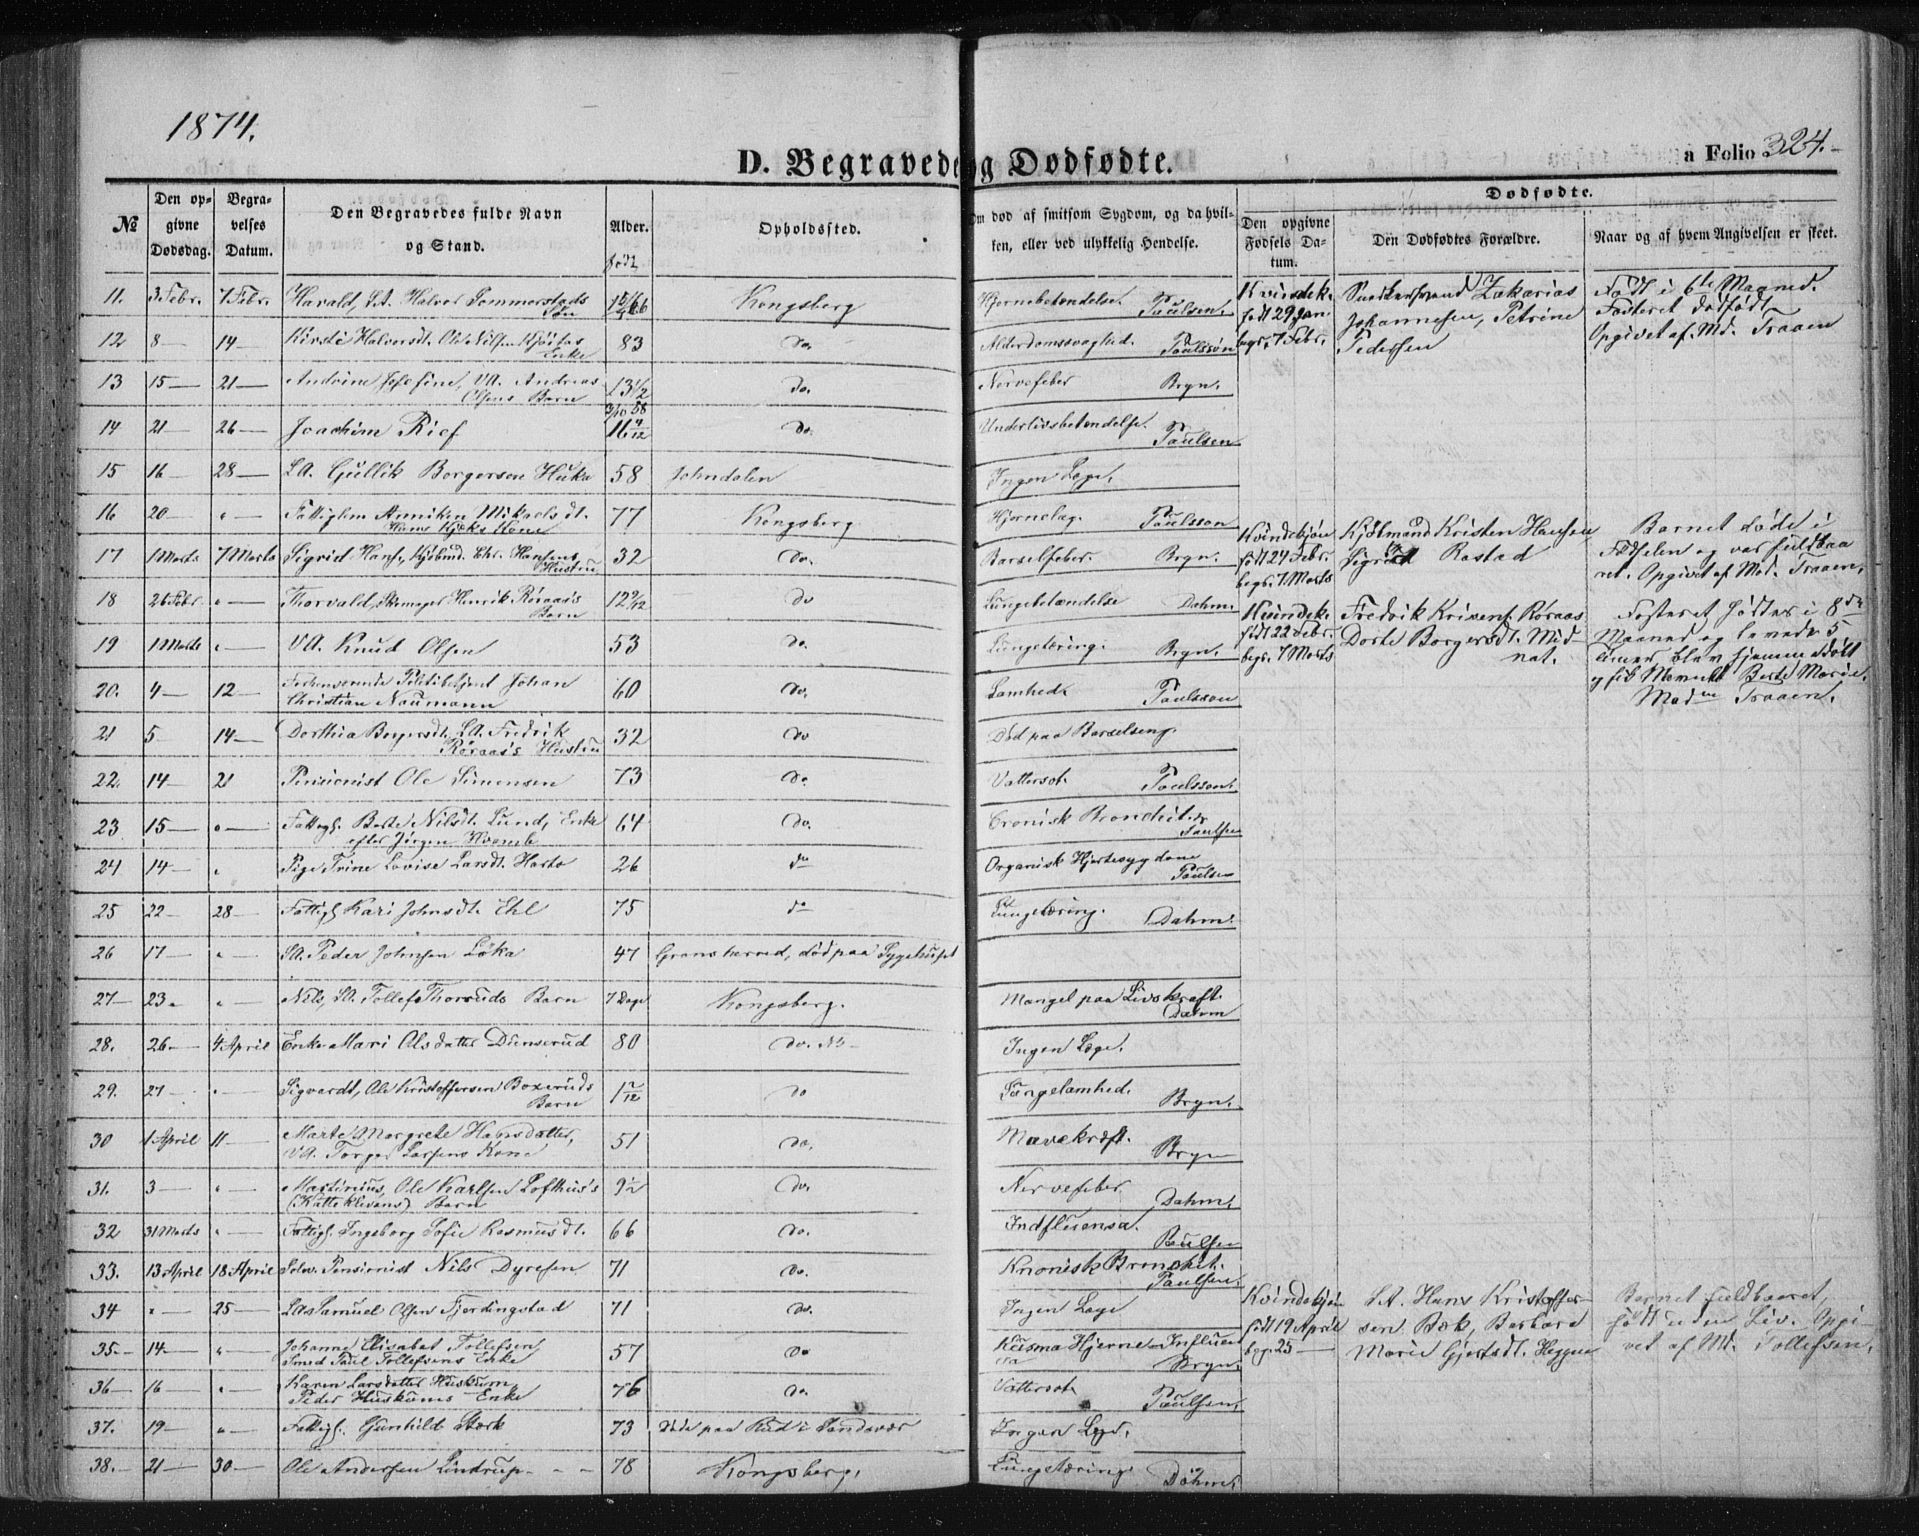 1874.
D. Begravede og Dødfødte.
a Folio 324.
№
Den opgivne Dødsdag.
Begravelses Datum.
Den Begravedes fulde Navn og Stand.
Alder.
født
Opholdssted.
Om død af smitsom Sygdom, og da hvilken, eller ved ulykkelig Hendelse.
Dødfødte.
Den opgivne Fødsels Datum.
Den Dødfødtes Forældre.
Naar og af hvem Angivelsen er skeet.
11. 3 Febr. 7 Febr. Havald, S.A. Halvor Sommerstads Kongsberg Hjernebetændelse. Paulsen.
12 8 — 14 — Kirsti Halvorsdt. Ole Nilsen Enke 83 do. Alderdomssvaghed. Paulsson
13 15 — 21 — Andrine Josefine, VA. Andreas Olsens Barn 13 1/2 do. Nervefeber Bryn.
14 21 — 26 — Joachim Rief 16 4/12 do Underlivsbetændelse. Paulsen
15 16 — 28 — S.A. Gullik Borgersen Huka 58 Johndalen Ingen Læge.
16 20 — " — Fattiglem Anniken Mikaelsdt. Hans Kone 77 Kongsberg Paulsson
17 1 Marts 7 Marts Sigrid Hans, Kjøbmd. Chr. Hansens Hustru 32 do. Barselfeber. Bryn.
18 26 Febr " — Thorvald, Skomager Henrik Røraas's Barn 12 9/12 do Lungebetændelse Dahm.
19 1 Marts " — VA. Knud Olsen 53 do. Lungetæring. Bryn.
20. 4 — 12 — Forhenværende Politibetjent Johan Christian Naumann 60 do. Lamhed. Paulsson
21 5 14 — Dorthia Borgersdt. S.A. Fredrik Røraas's Hustru 32 do Død paa Barselseng.
22. 14 — 21 Pensionist Ole Simensen 73 do. Vattersot. Paulsson.
23 15 — " — Fattigl. Berte Nilsdt. Lund, Enke efter Jørgen 64 do. Cronisk Bronchit. Paulsen
24 14 — " Pige Trine Lovise Larsdt. 26 do Organisk Hjertesygdom Paulsen
25 22 — 28 — Fattigl. Kari Johnsdt. Ehl 75 do Lungetæring. Dahm.
26 17 — " — S.A. Peder Johnsen Løka 47 Gransherred, død paa Sygehuset
27 — 23 " " — Nils, S.A. Tollef Thorsuds Barn 7 Dage Kongsberg. Mangel paa Livskraft. Dahm
28. 26 — 4 April Enke Mari Olsdatter Dunserud 80 do. Ingen Læge.
29. 27 " — Sigvardt, Ole Kristoffersen Boxeruds Barn 1 7/12 do Bryn.
30 1 April 11 — Marte Margrete Hansdatter, VA. Torger Larsens Kone 51 do. Mavekræft. Bryn
31. 3 — " — Martinius, Ole Karlsen Lofthus's (Katteklivans) Barn 9 1/2 do. Nervefeber Dahm.
32 31 Marts " — Fattigl. Ingeborg Sofie Rasmusdt. 66 do. Indfluensa. Paulsen
33. 13 April 18 April Pensionist Nils Dyresen 71 do. Kronisk Bronchit. Paulsen.
34 " — 25 — Samuel Olsen Fjerdingstad 71 do. Ingen Læge
35. 14 — " — Johanne Elisabet Tollefsen Smed Paul Tollefsens Enke 57 do Bryn.
36 — 16 — " — Karen Larsdatter Huskum, Peder Huskums Enke 76 do. Vattersot. Paulsen.
37. 19 — " — Fattigl. Gunhild Stork 73 Døde paa Rud i Sandsvær Ingen Læge.
38. — 21 — 30 — Ole Andersen Lindrup — 78 Kongsberg. Lungetæring. Dahm.
Kvindek. født 29 Jan begr. 7 Febr.
Zakarias Johannesen, Petrine Pedersen
Født i 6te Maaned. Fosteret dødfødt Opgivet af Md. Traaen
Kvindekjøn født 24 Febr. begr. 7 Marts
Kjøbmand Kristen Hansen Sigrid Rostad
Barnet døde i Fødselen og var fuldbaaret. Opgivet af Md. Traaen.
Kvindek. født 22 Febr. begr. 7 Marts
Fredrik Røraas Dorte Borgersdt.
Fosteret fødtes i 8de Maaned og levede 5 Timer blev hjemmedøbt og fik Navnet Berte Marie. Madm Traaen.
Kvindekjøn født 19 April begr. 25 —
S.A. Hans Kristoffersen Bæk, Barbara Marie Gjertsdt.
Barnet fuldbaaret, født uden Liv. Opgivet af Md. Tollefsen.